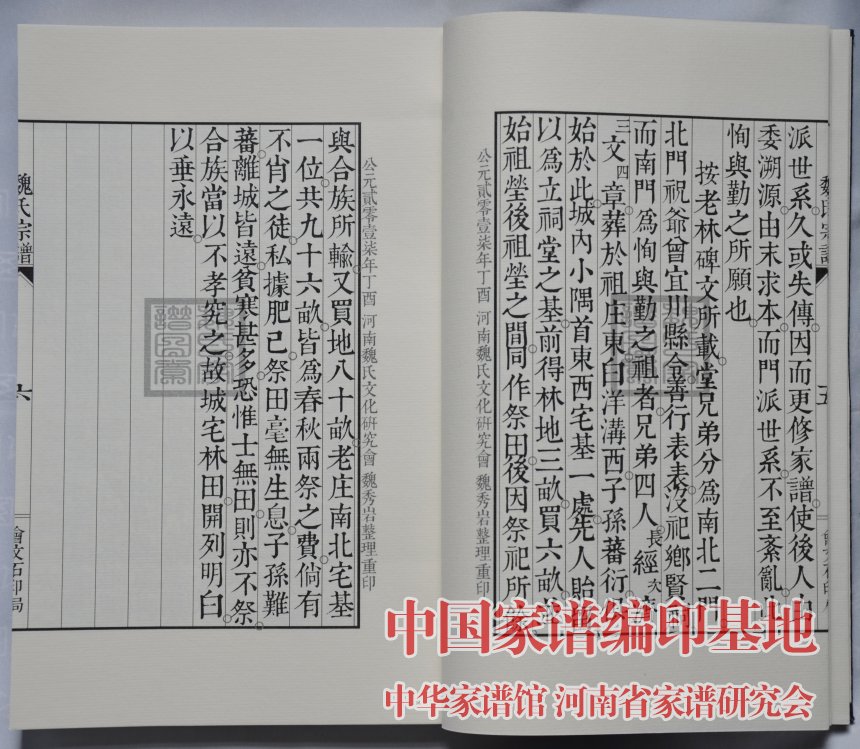 魏氏宗譜
五
派世系久或失傳因而更修家譜使後人
委溯源由末求本而門派世系不至紊亂
恂與勤之所願也
按老林碑文所載堂兄弟分為南北二門
北門祝爺曾宜川縣令善行表表沒祀鄉賢
而南門為恂與勤之祖者兄弟四人長經次
三文四章葬於祖庄東曰洋溝西子孫蕃衍
始於此城內小隅首東西宅基一處先人貽
以為立祠堂之基前得林地三畝買六畝
始祖塋後祖塋之間同作祭田後因祭祀所
公元貳零壹柒年丁酉 河南魏氏文化研究會 魏秀岩整理重印
公元貳零壹柒年丁酉 河南魏氏文化研究會 魏秀岩整理重印
與合族所輸又買地八十畝老庄南北宅基
一位共九十六畝皆為春秋兩祭之費倘有
不肖之徒私據肥己祭田毫無生息子孫難
蕃離城皆遠貧寒甚多恐惟士無田則亦不祭
合族當以不孝究之故城宅林田開列明白
以垂永遠
魏氏宗譜
六
會文石印局
中国家谱编印基地
中华家谱馆 河南省家谱研究会